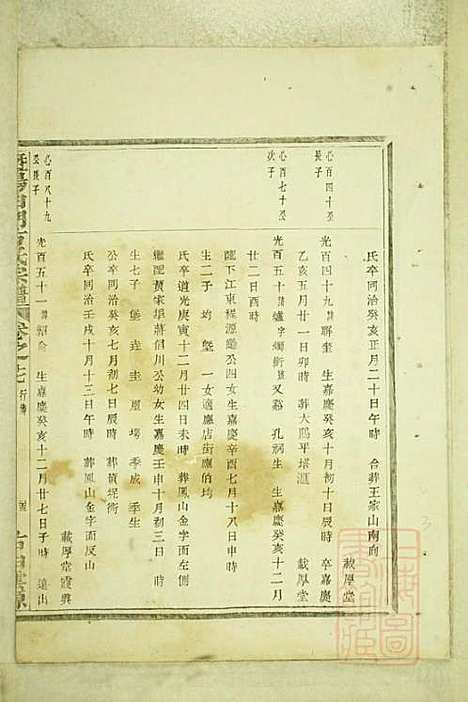 氏卒同治癸亥正月二十日午時 合葬王家山南向
載厚堂
心百四十至長子
光百四十九 聯奎 生嘉慶癸亥十月初十日辰時 卒嘉慶
乙亥五月廿一日卯時 葬大鵬平塔
載厚堂
心百七十至次子
光百五十 爐字燭術 又谿 孔嗣生 生嘉慶癸亥十二月
廿二日酉時
醮下江東程源 公四女生嘉慶辛酉七月十八日申時
生二子 均 墾 一女適應店街應伯均
氏卒道光庚寅十二月廿四日未時 葬鳳山金字面左側
繼配黃家埠蔣 川公幼女生嘉慶壬申十月初三日 時
生七子 堡 垚 圭 塏 季成 季生
公卒同治癸亥七月初七日辰時 葬 衖
氏卒同治壬戌十月十三日午時 葬鳳山金字面反山
載厚堂 典
心百八十九至長子
光百五十一 生嘉慶癸亥十二月廿七日子時 遠出
宗譜 卷之七 行傳